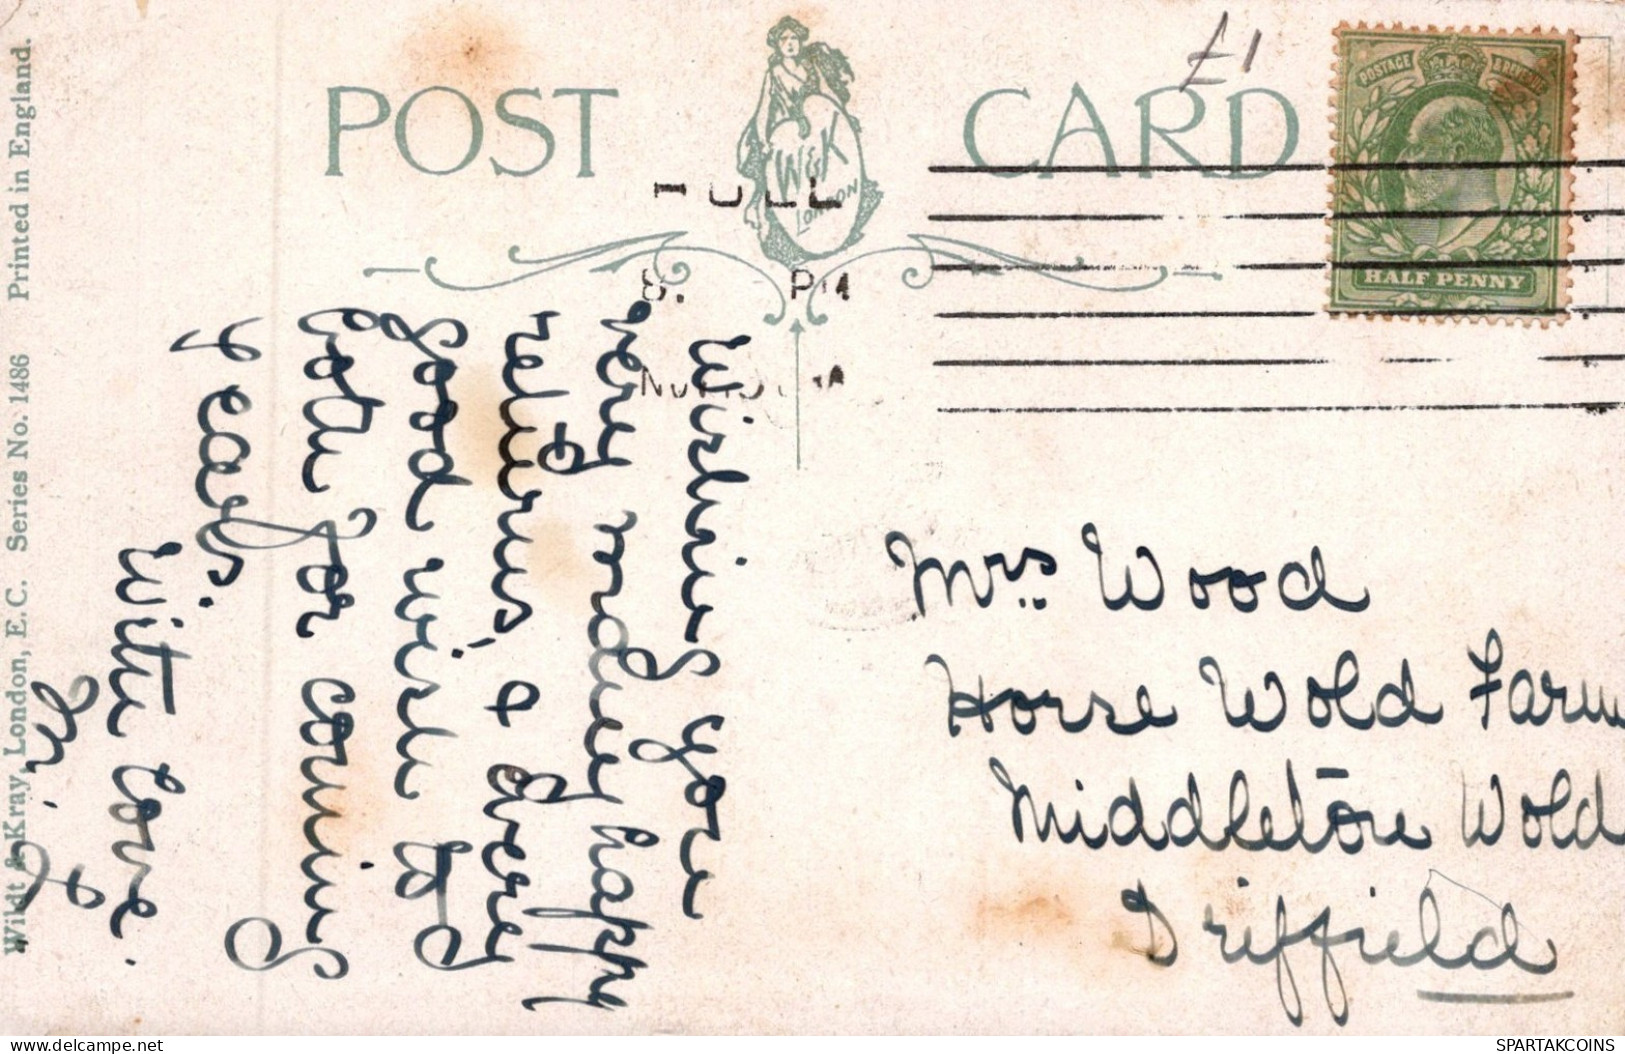 POST CARD
W&K
LONDON
£1
POSTAGE & REVENUE
HALF PENNY
HULL
8. PM
Wishing you
very many happy
returns, & every
good wish to
both for coming
years.
With love.
Mrs Wood
Horse Wold Farm
Middleton Wold
Driffield
Wildt & Kray, London, E.C. Series No. 1486 Printed in England.
www.delcampe.net/store/sbc
SPARTAKCOINS